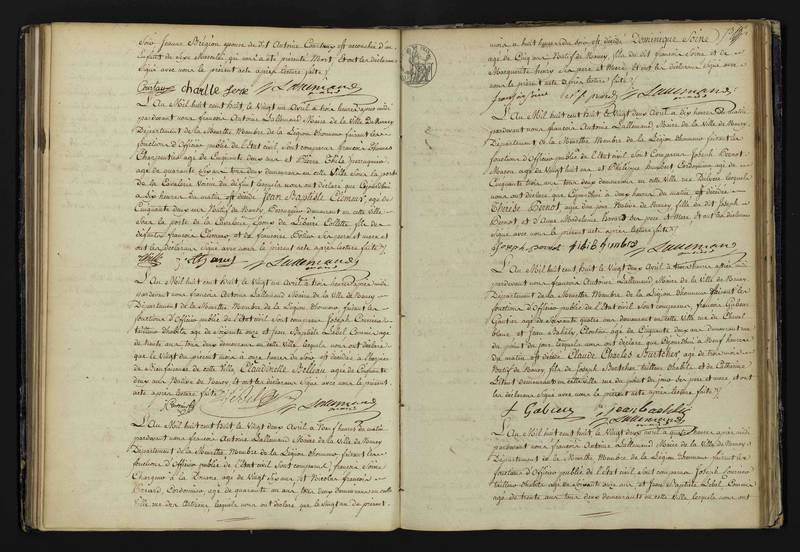 Soir Jeanne Brégion épouse du dit Antoine Courteux est accouchée d'un
Enfant du Sexe
Signé avec nous le présent acte après lecture faite
Courteux Lallemand
L'An Mil huit cent huit le Vingt un Avril à trois heures après midi
pardevant nous françois Antoine Lallemand Maire de la Ville de Nancy
Département de la Meurthe, Membre de la Légion d'honneur faisant les
fonctions d'Officier public de l'Etat civil, Sont comparus françois Thomas
Charpentier âgé de Cinquante deux ans et Pierre perruquier
âgé de quarante six ans tous deux demeurans en cette Ville
de la Cavalerie Voisins du défunt lesquels nous ont déclaré que
à dix heures du matin est décédé Jean Baptiste Cumeur âgé de
Cinquante deux ans Natif de Nancy Perruquier demeurant en cette Ville
Sur la porte de la Cavalerie Epoux de Libaire Collette fils de
défunts françois Cumeur et de françoise Ses père et mère et
ont les déclarans Signé avec nous le présent acte après lecture faite
Lallemand
maire
L'An Mil huit cent huit, le Vingt un avril à trois heures après midi
pardevant nous françois Antoine Lallemand Maire de la Ville de Nancy
Département de la Meurthe, Membre de la Légion d'honneur faisant les
fonctions d'Officier public de l'Etat civil sont comparus Joseph
tailleur d'habits âgé de Soixante onze ans et Jean Baptiste Lebel Commis âgé
de trente ans tous deux demeurans en cette Ville lesquels nous ont déclaré
que le Vingt du présent mois à onze heures du Soir est décédée à l'hospice
de Bienfaisance de cette Ville Claudinette Bolleau âgée de Cinquante
deux ans Native de Nancy, Et ont les déclarans Signé avec nous le présent
acte après lecture faite
Lallemand
maire
L'An Mil huit cent huit le Vingt deux Avril à Neuf heures du matin
pardevant nous françois Antoine Lallemand Maire de la Ville de Nancy
Département de la Meurthe, Membre de la Légion d'honneur faisant les
fonctions d'Officier public de l'Etat civil sont comparus françois Soine
Chargeur à la Douane âgé de Vingt Six ans, et Nicolas françois
Cordonnier, âgé de quarante un ans tous deux demeurans en cette
Ville rue des Artisans lesquels nous ont déclaré que le Vingt un du présent
mois à huit heures du Soir est décédé Dominique Soine
âgé de Cinq ans Natif de Nancy, fils du dit françois Soine et de
Marguerite Henry Ses père et Mère, Et ont les déclarans Signé avec
nous le présent acte après lecture faite
Lallemand
L'An Mil huit cent huit, le Vingt deux Avril à dix heures du matin
pardevant nous françois Antoine Lallemand, Maire de la Ville de Nancy
Département de la Meurthe Membre de la Légion d'honneur faisant les
fonctions d'Officier public de l'Etat civil Sont Comparus Joseph Donot
Maçon âgé de Vingt huit ans et Humbert Cordonnier âgé de
Cinquante trois ans tous deux demeurans en cette Ville lesquels
nous ont déclaré que Cejourd'hui à deux heures du matin est décédée
Thérèse Donot âgée d'un jour Native de Nancy fille du dit Joseph
Donot et d'Anne Ses père et Mère, Et ont les déclarans
Signé avec nous le présent acte après lecture faite
Joseph Donot Lallemand
maire
L'An Mil huit cent huit le Vingt deux Avril à trois heures après midi
pardevant nous françois Antoine Lallemand Maire de la Ville de Nancy
Département de la Meurthe Membre de la Légion d'honneur faisant les
fonctions d'Officier public de l'Etat civil sont comparus françois Gabeur
Cantier âgé de Soixante quatre ans demeurant en cette Ville rue du Cheval
blanc et Jean Baptiste âgé de Cinquante deux ans demeurant rue
du point du jour lesquels nous ont déclaré que Cejourd'hui à Neuf heures
du matin est décédé Claude Charles Burtcher âgé de trois mois
Natif de Nancy, fils de Joseph Burtcher tailleur d'habits et de Catherine
demeurans en cette Ville rue du point du jour Ses père et mère, et ont
les déclarans Signé avec nous le présent acte après lecture faite
f Gabeur Jean baptiste
Lallemand
maire
L'An Mil huit cent huit, le Vingt deux avril à quatre heures après midi
pardevant nous françois Antoine Lallemand Maire de la Ville de Nancy
Département de la Meurthe Membre de la Légion d'honneur faisant les
fonctions d'Officier public de l'Etat civil sont comparus Joseph
tailleur d'habits âgé de Soixante onze ans, et Jean Baptiste Lebel Commis
âgé de trente ans tous deux demeurans en cette Ville lesquels nous ont